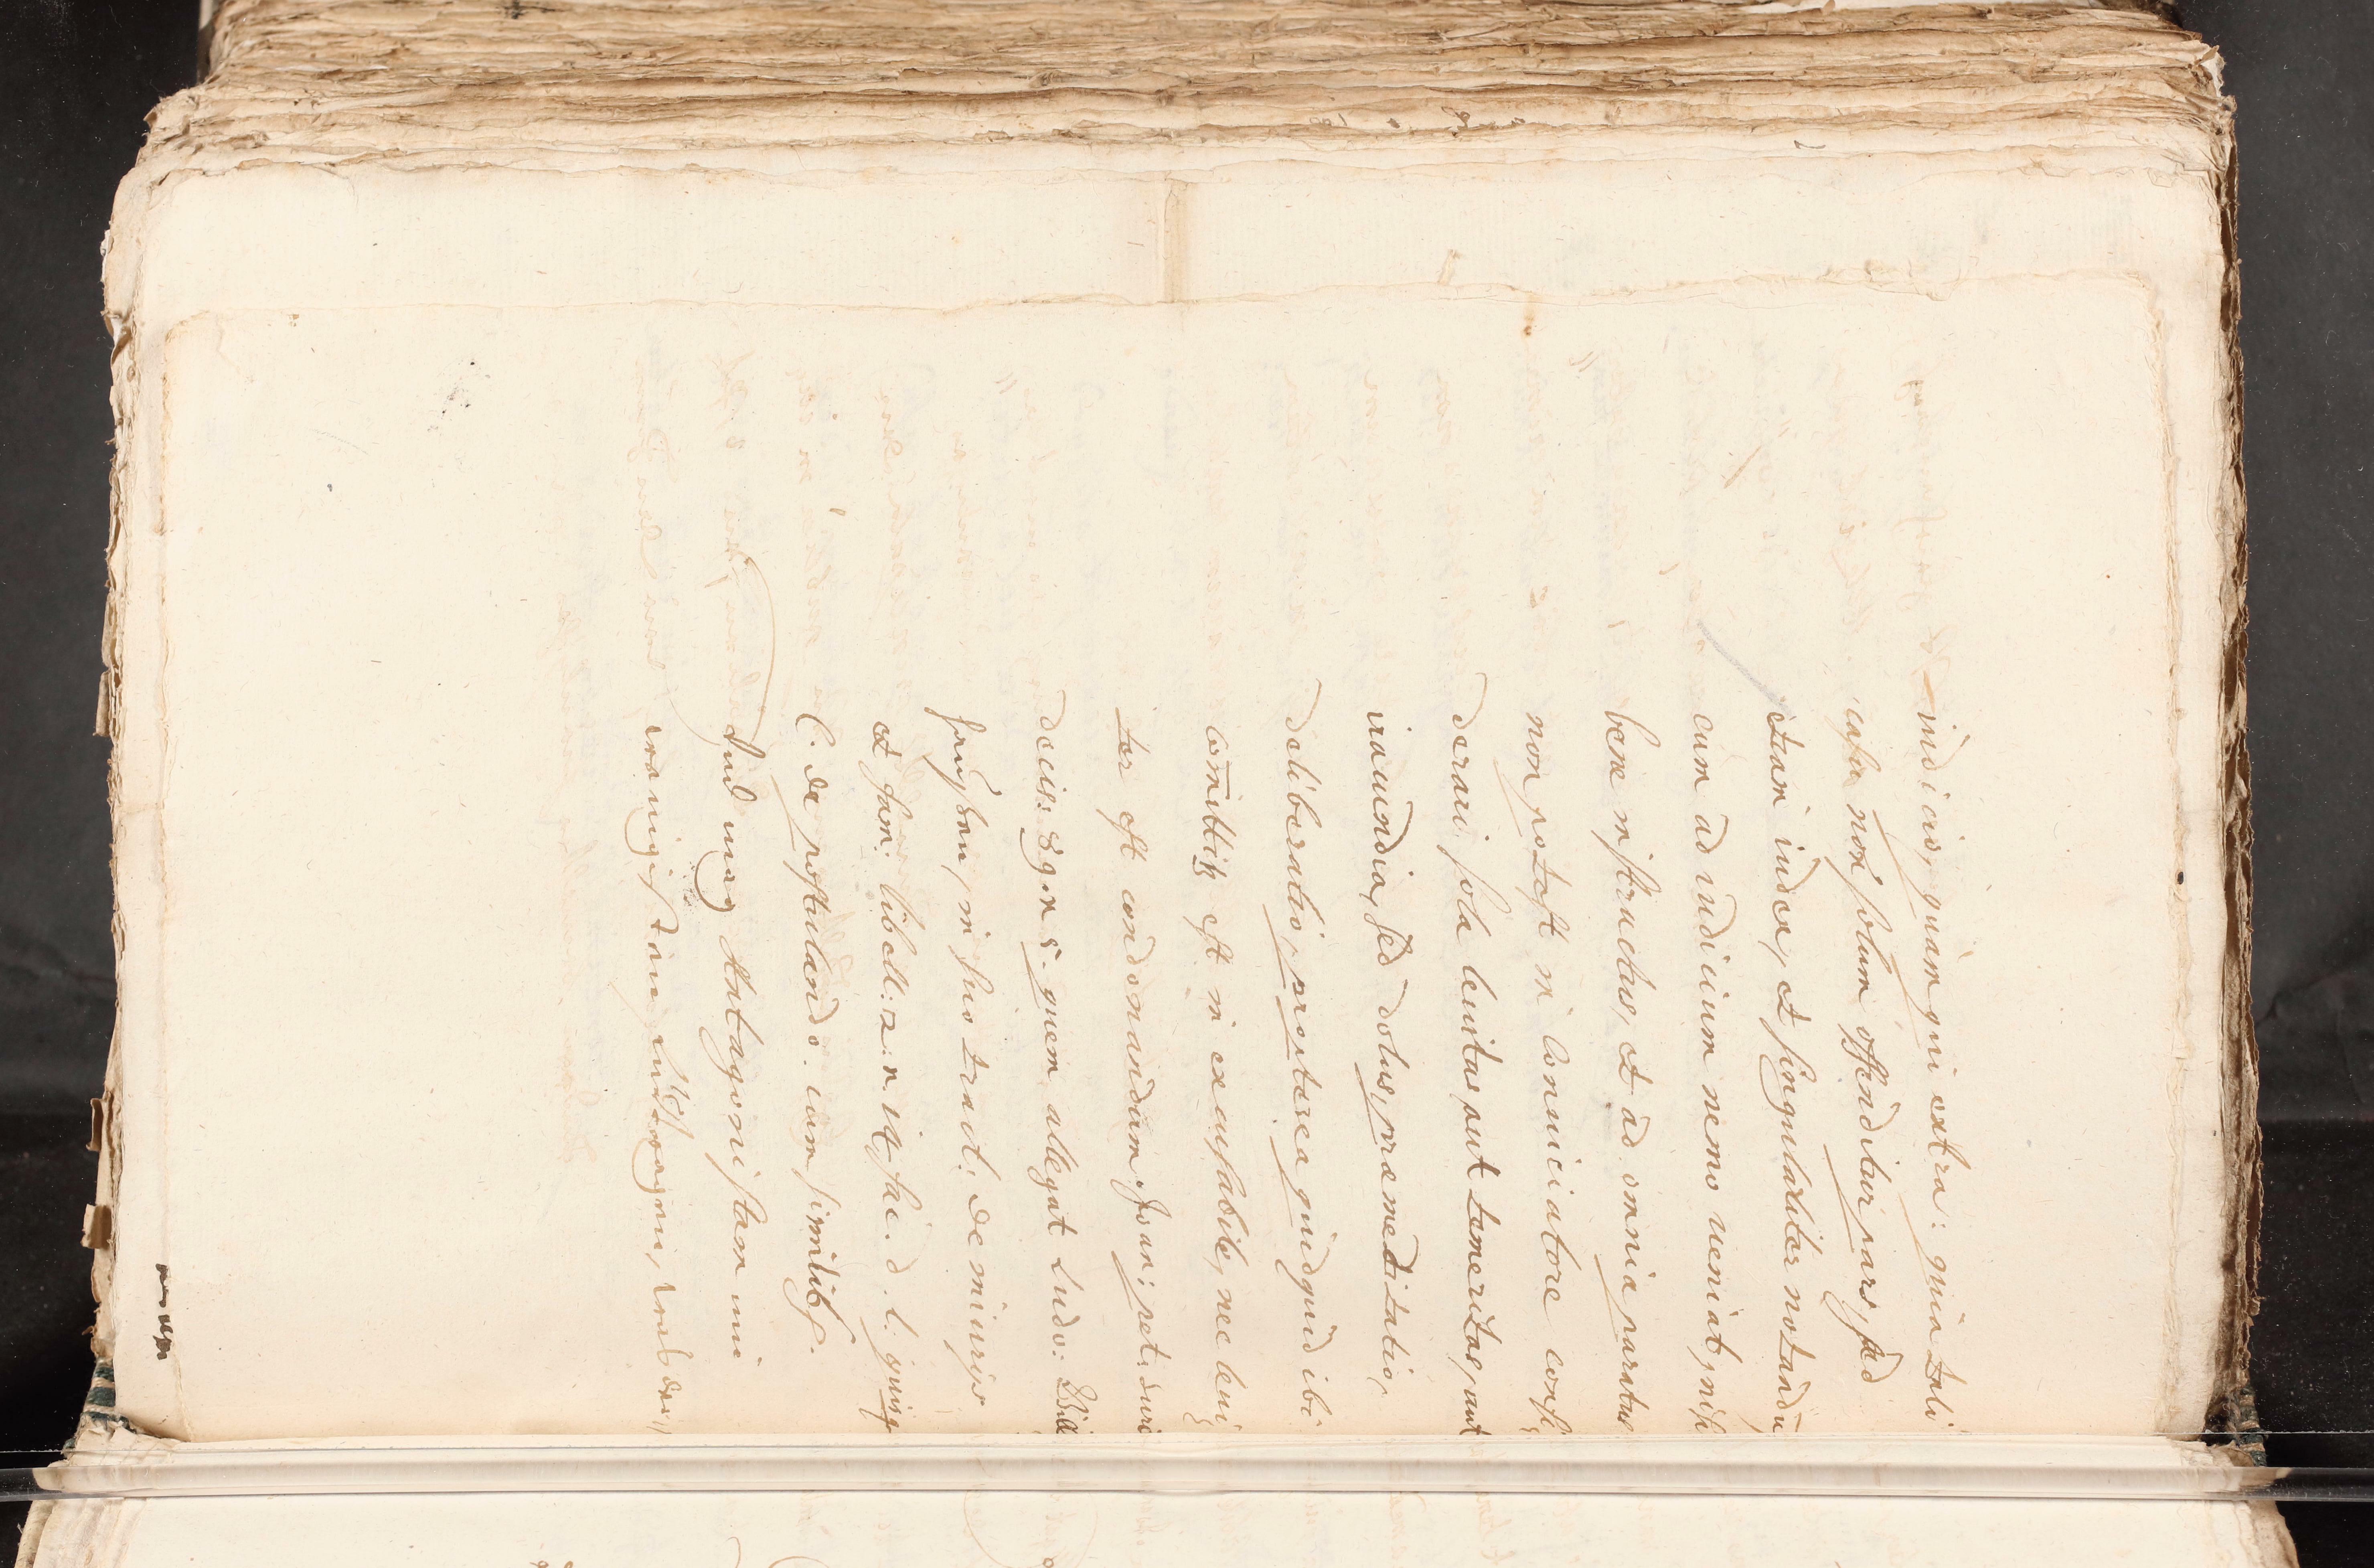 iudicio, quam qui extra: quia tali
casu non solum offenditur pars, sed
etiam iudex, et singulariter notandū,
cum ad iudicium nemo ueniat, nisi
bene instructus, et ad omnia paratus
non potest in conuiciatore consi⸗
derari, sola leuitas, aut temeritas, aut
iracundia, sed dolus, præmeditatio,
deliberatio, propterea quidquid ibi
com̄ittitr est in excusabile, nec leui⸗
ter est condonandum. Joan: pet: suri
decis: 89. n. 5. quem allegat Ludo:
in suo tract: de iniurijs
et fam: libell: 2: n. 14. fac. d. l. quisq
C. de postulando. cum similibs.
Vnd mag Antagonistam nit